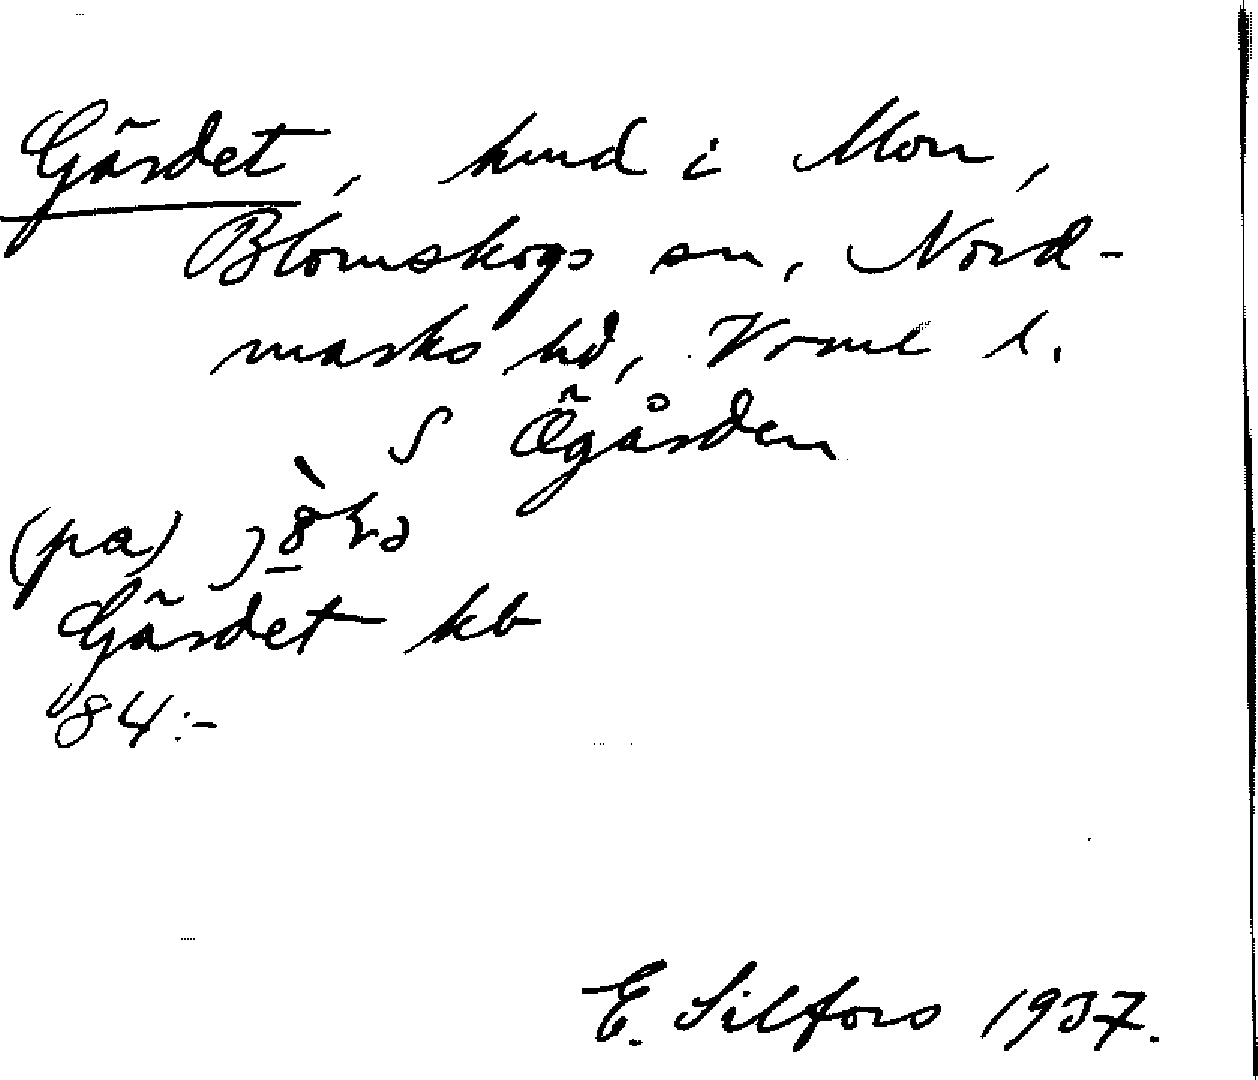 Gärdet, hmd i Mon,
Blomskogs sn, Nord-
marks hd, Vrml l.
S Ögården
(pa)
Gärdet kb
84:-
E. Silfors 1937.